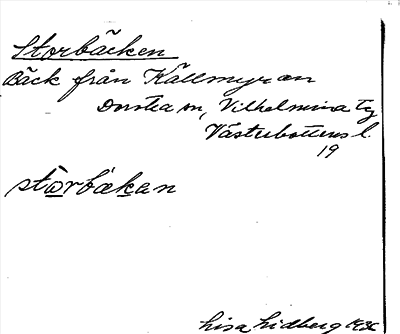 Storbäcken
Bäck från Källmyran
Dorotea sn, Vilhelmina tg
Västerbottens l.
19
storbäkan
Lisa Lidberg 1936